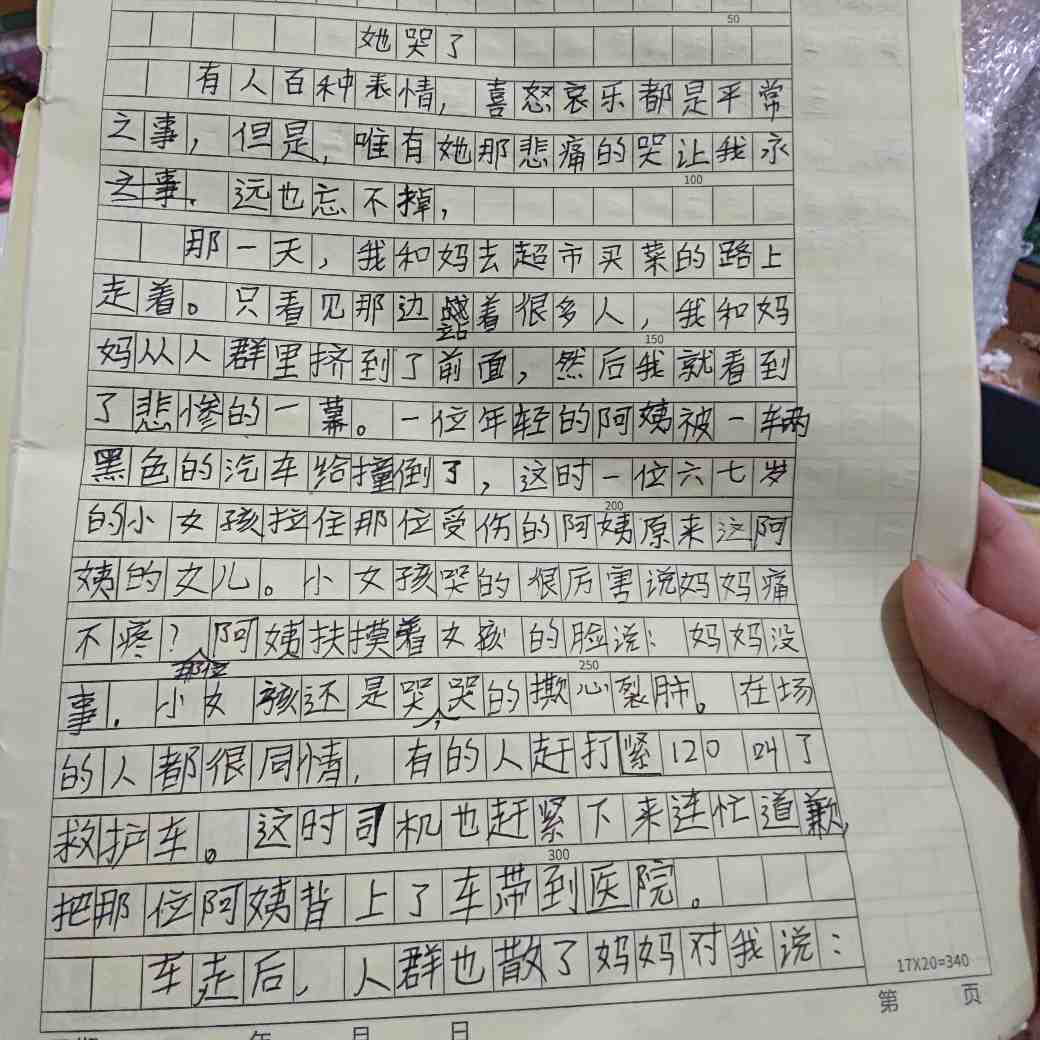 50
她哭了
有人百种表情，喜怒哀乐都是平常
之事，但是，唯有她那悲痛的哭让我永
之事．远也忘不掉，
100
那一天，我和妈去超市买菜的路上
走着。只看见那边站着很多人，我和妈
150
妈从人群里挤到了前面，然后我就看到
了悲惨的一幕。一位年轻的阿姨被一辆
黑色的汽车给撞倒了，这时一位六七岁
200
的小女孩拉住那位受伤的阿姨原来这阿
姨的女儿。小女孩哭的很厉害说妈妈痛
不疼？那位阿姨扶摸着女孩的脸说：妈妈没
250
事．小女孩还是哭，哭的撕心裂肺。在场
的人都很同情，有的人赶打紧120叫了
救护车。这时司机也赶紧下来连忙道歉，
300
把那位阿姨背上了车带到医院。
车走后，人群也散了妈妈对我说：
17X20=340
第 页
年 月 日